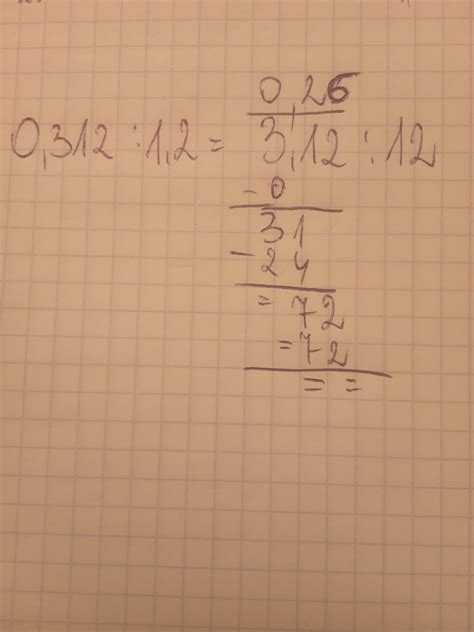 0,26
0,312 : 1,2 = 3,12 : 12
- 0
31
- 24
= 72
= 72
= =